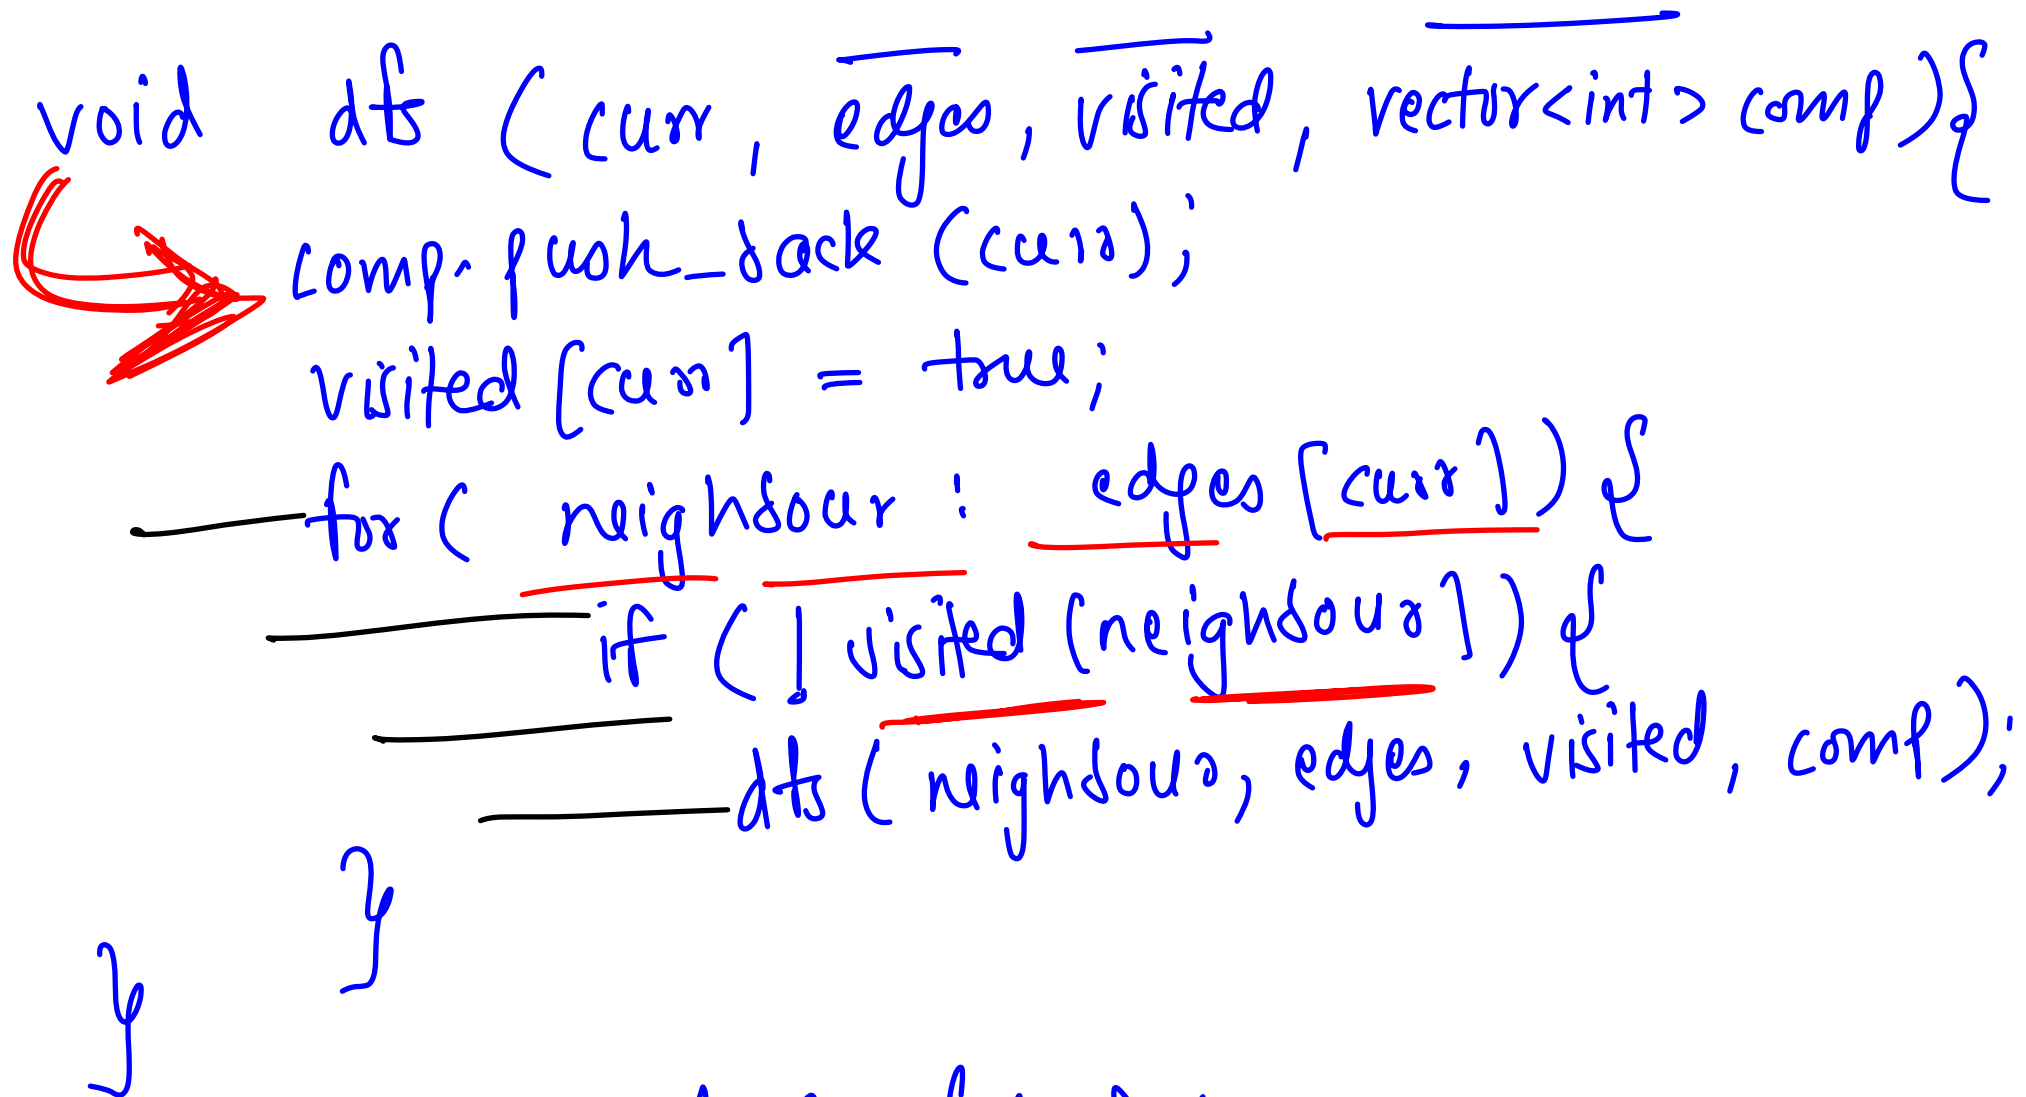 void dfs (curr, edges, visited, vector<int> comp){
comp.push_back (curr);
visited [curr] = true;
for ( neighbour : edges [curr]) {
if (! visited [neighbour]) {
dfs (neighbour, edges, visited, comp);
}
}